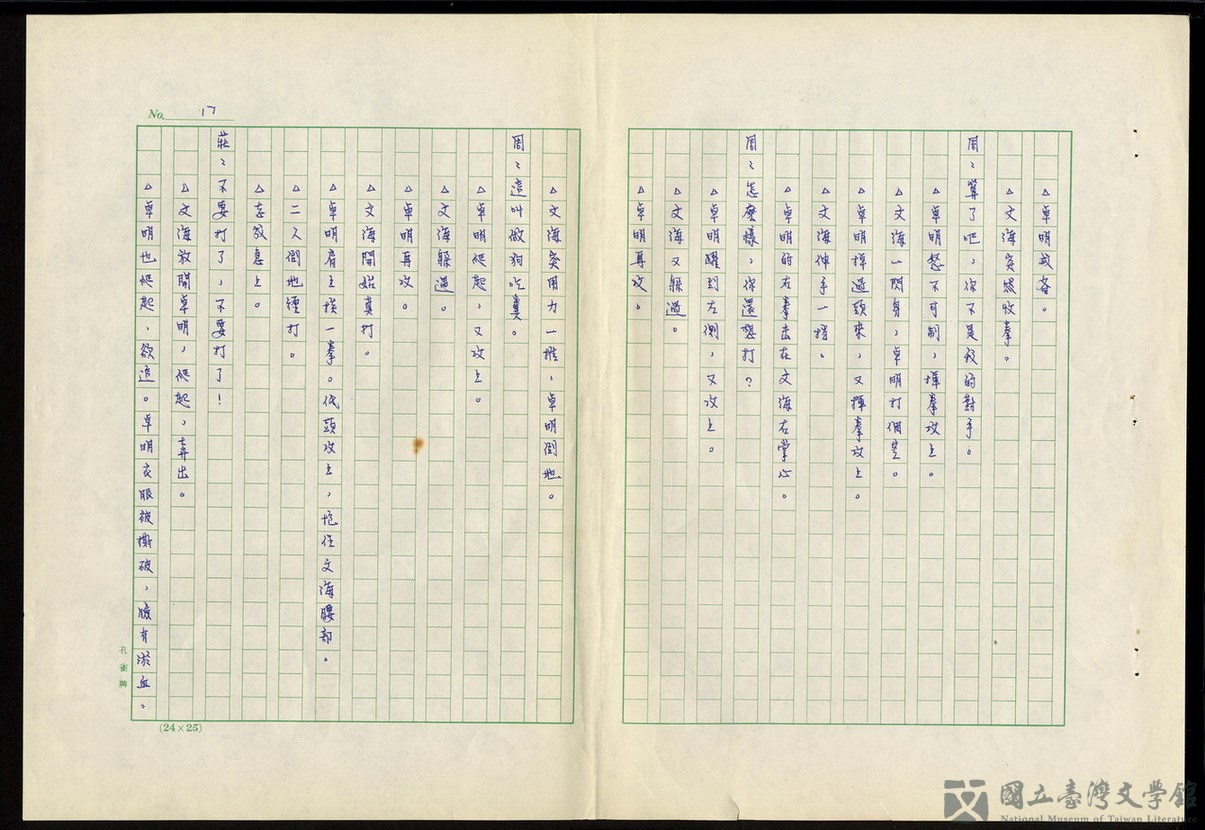 △卓明或吝。
△文海突然收拳。
周:算了吧,你不是我的對手。
△卓明怒不可制,揮拳攻上。
△文海一閃身,卓明打個空。
△卓明掉過頭來,又揮拳攻上。
△文海伸手一擋。
△卓明的右拳击在文海右掌心。
周:怎麼樣,你還想打?
△卓明躍到左側,又攻上。
△文海又躲過。
△卓明再攻。
△文海突用力一推,卓明倒地。
周:這叫做狗吃糞。
△卓明爬起,又攻上。
△文海躲過。
△卓明再攻。
△文海開始真打。
△卓明肩上挨一拳。低頭攻上,抱住文海腰部。
△二人倒地纏打。
△志敏急上。
莊:不要打了,不要打了!
△文海放開卓明,爬起,奔出。
△卓明也爬起,欲追。卓明衣服被撕破,臉有淤血。
No. 17
孔雀牌
(24×25)
國立臺灣文學館
National Museum of Taiwan Literature